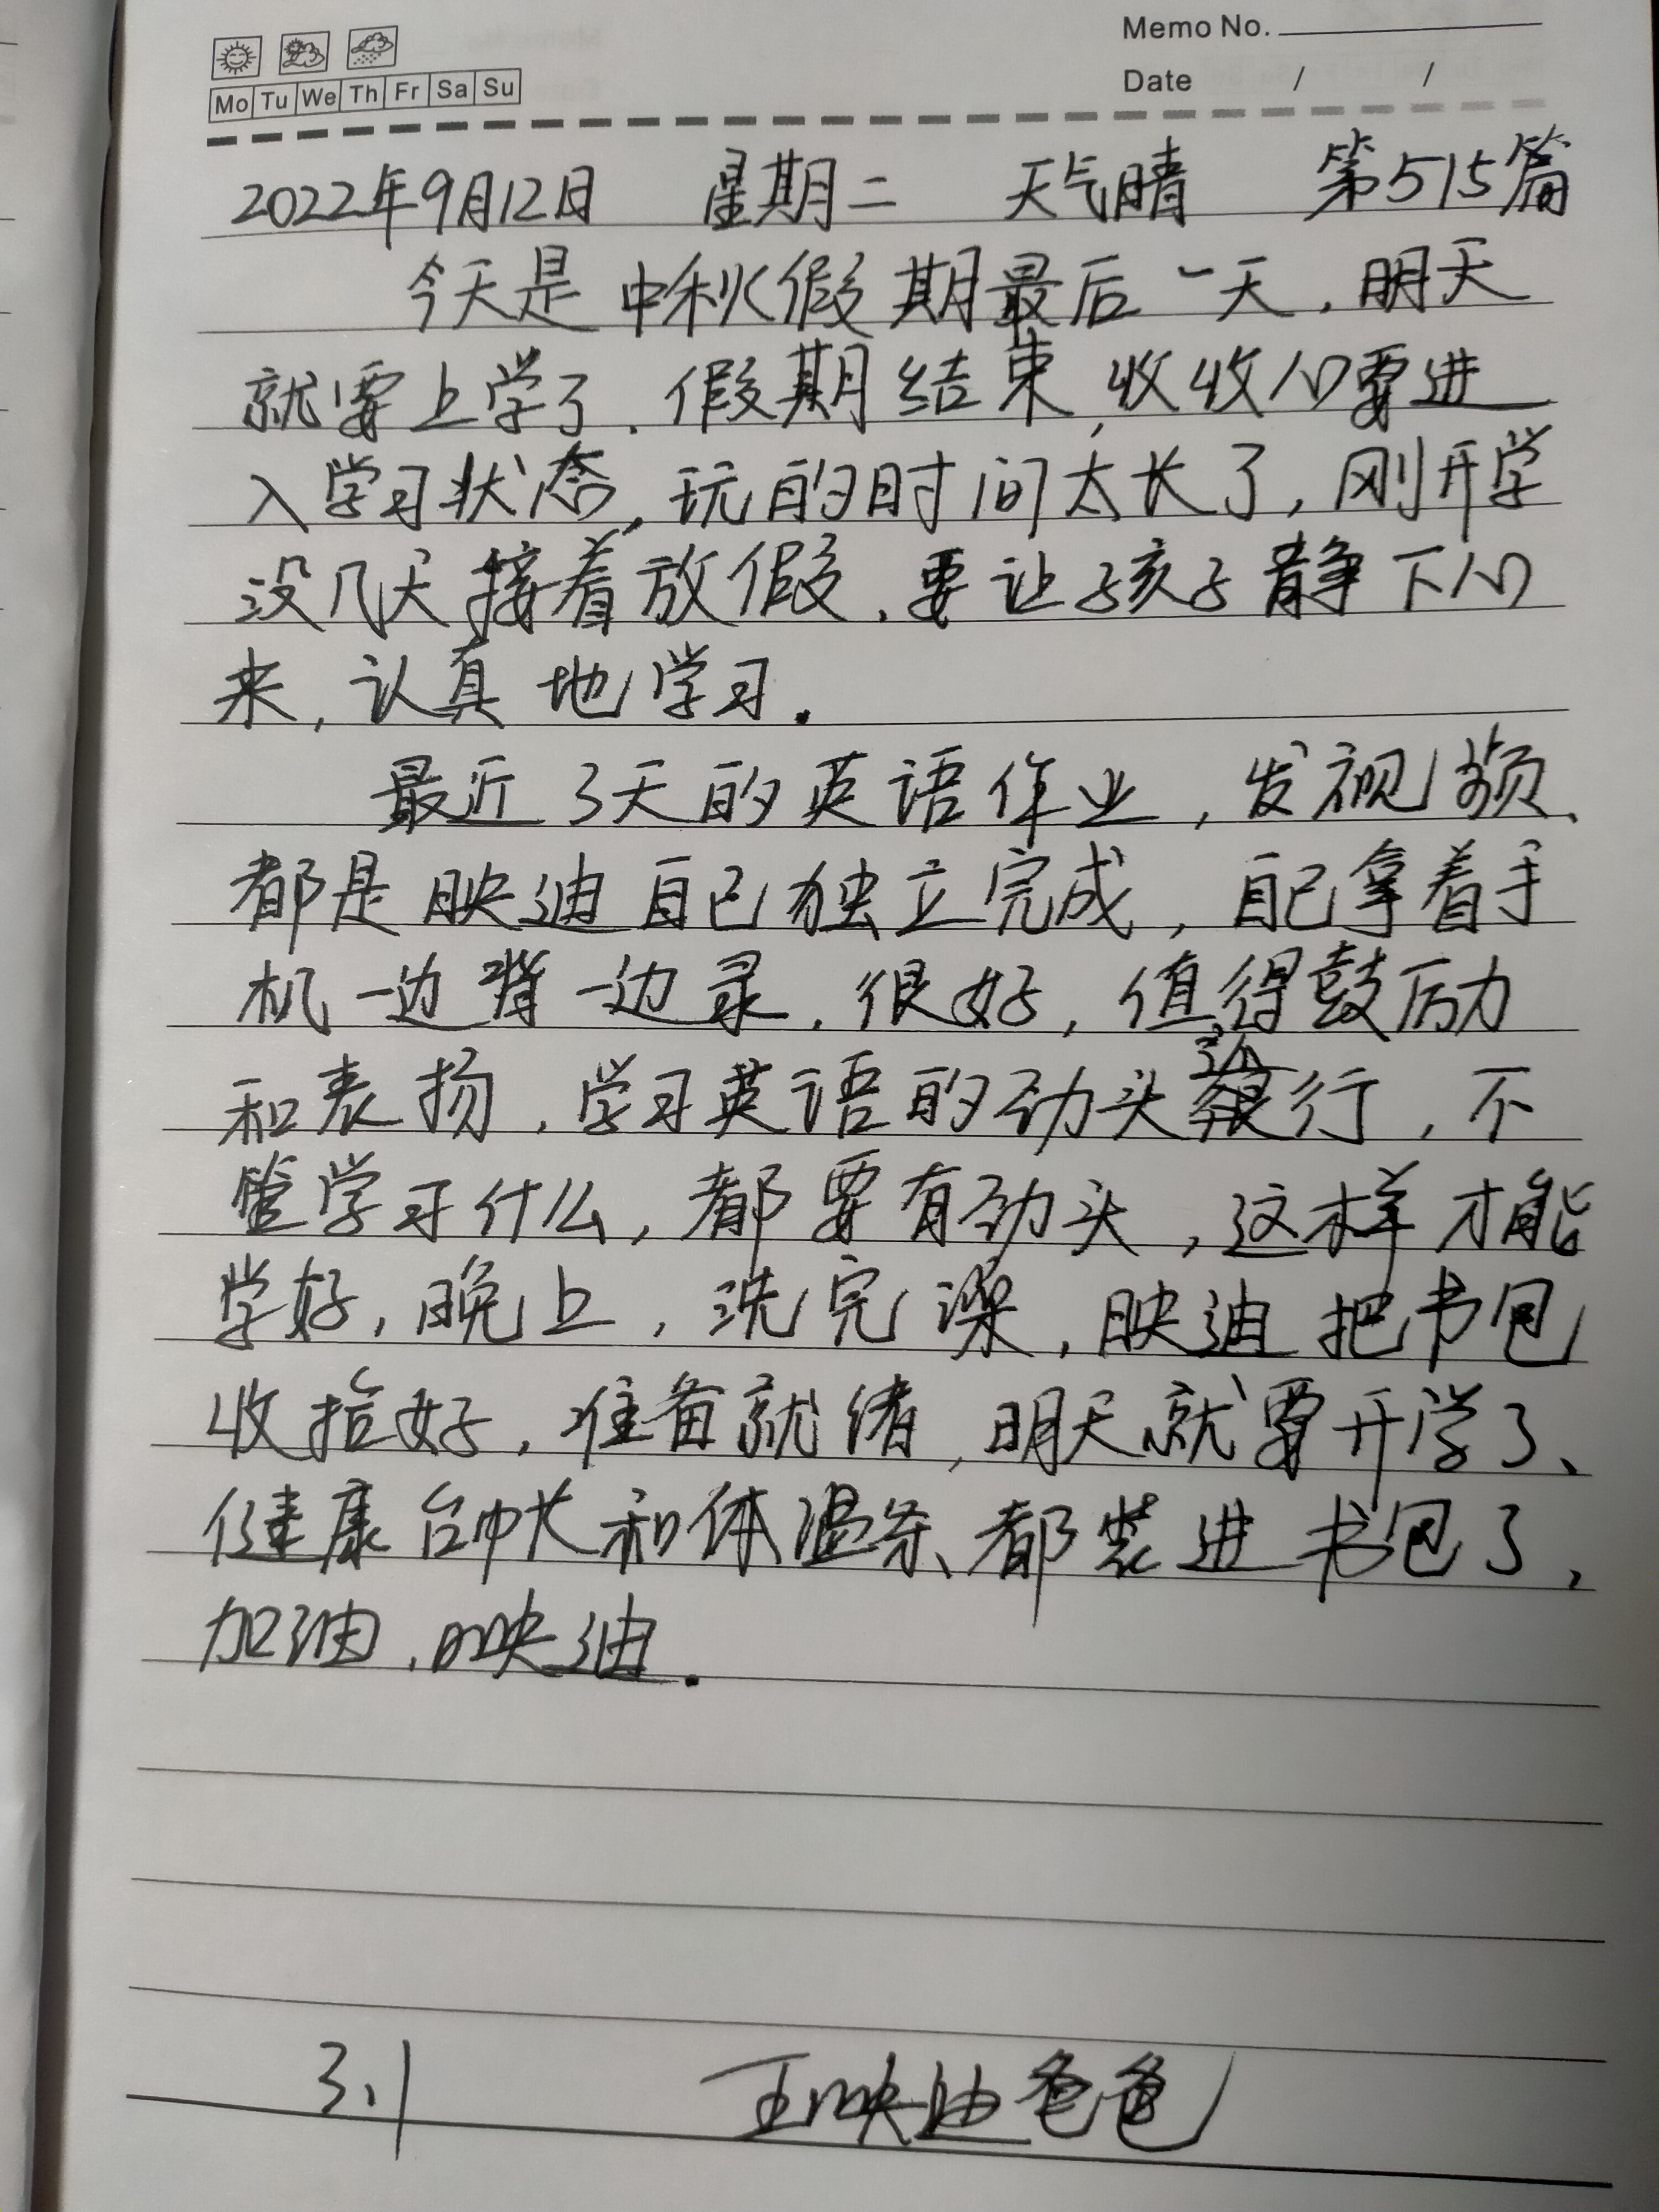 Memo No.
Mo Tu We Th Fr Sa Su
Date / /
2022年9月12日 星期二 天气晴 第515篇
今天是中秋假期最后一天,明天
就要上学了.假期结束,收收心要进
入学习状态,玩的时间太长了,刚开学
没几天接着放假.要让孩子静下心
来,认真地学习.
最近3天的英语作业,发视频、
都是映迪自已独立完成,自己拿着手
机一边背一边录.很好,值得鼓励
和表扬.学习英语的劲头还行,不
管学习什么,都要有劲头,这样才能
学好,晚上,洗完澡,映迪把书包
收拾好,准备就绪,明天就要开学了、
健康台帐和体温条、都装进书包了,
加油,映迪.
3.1 王映迪爸爸